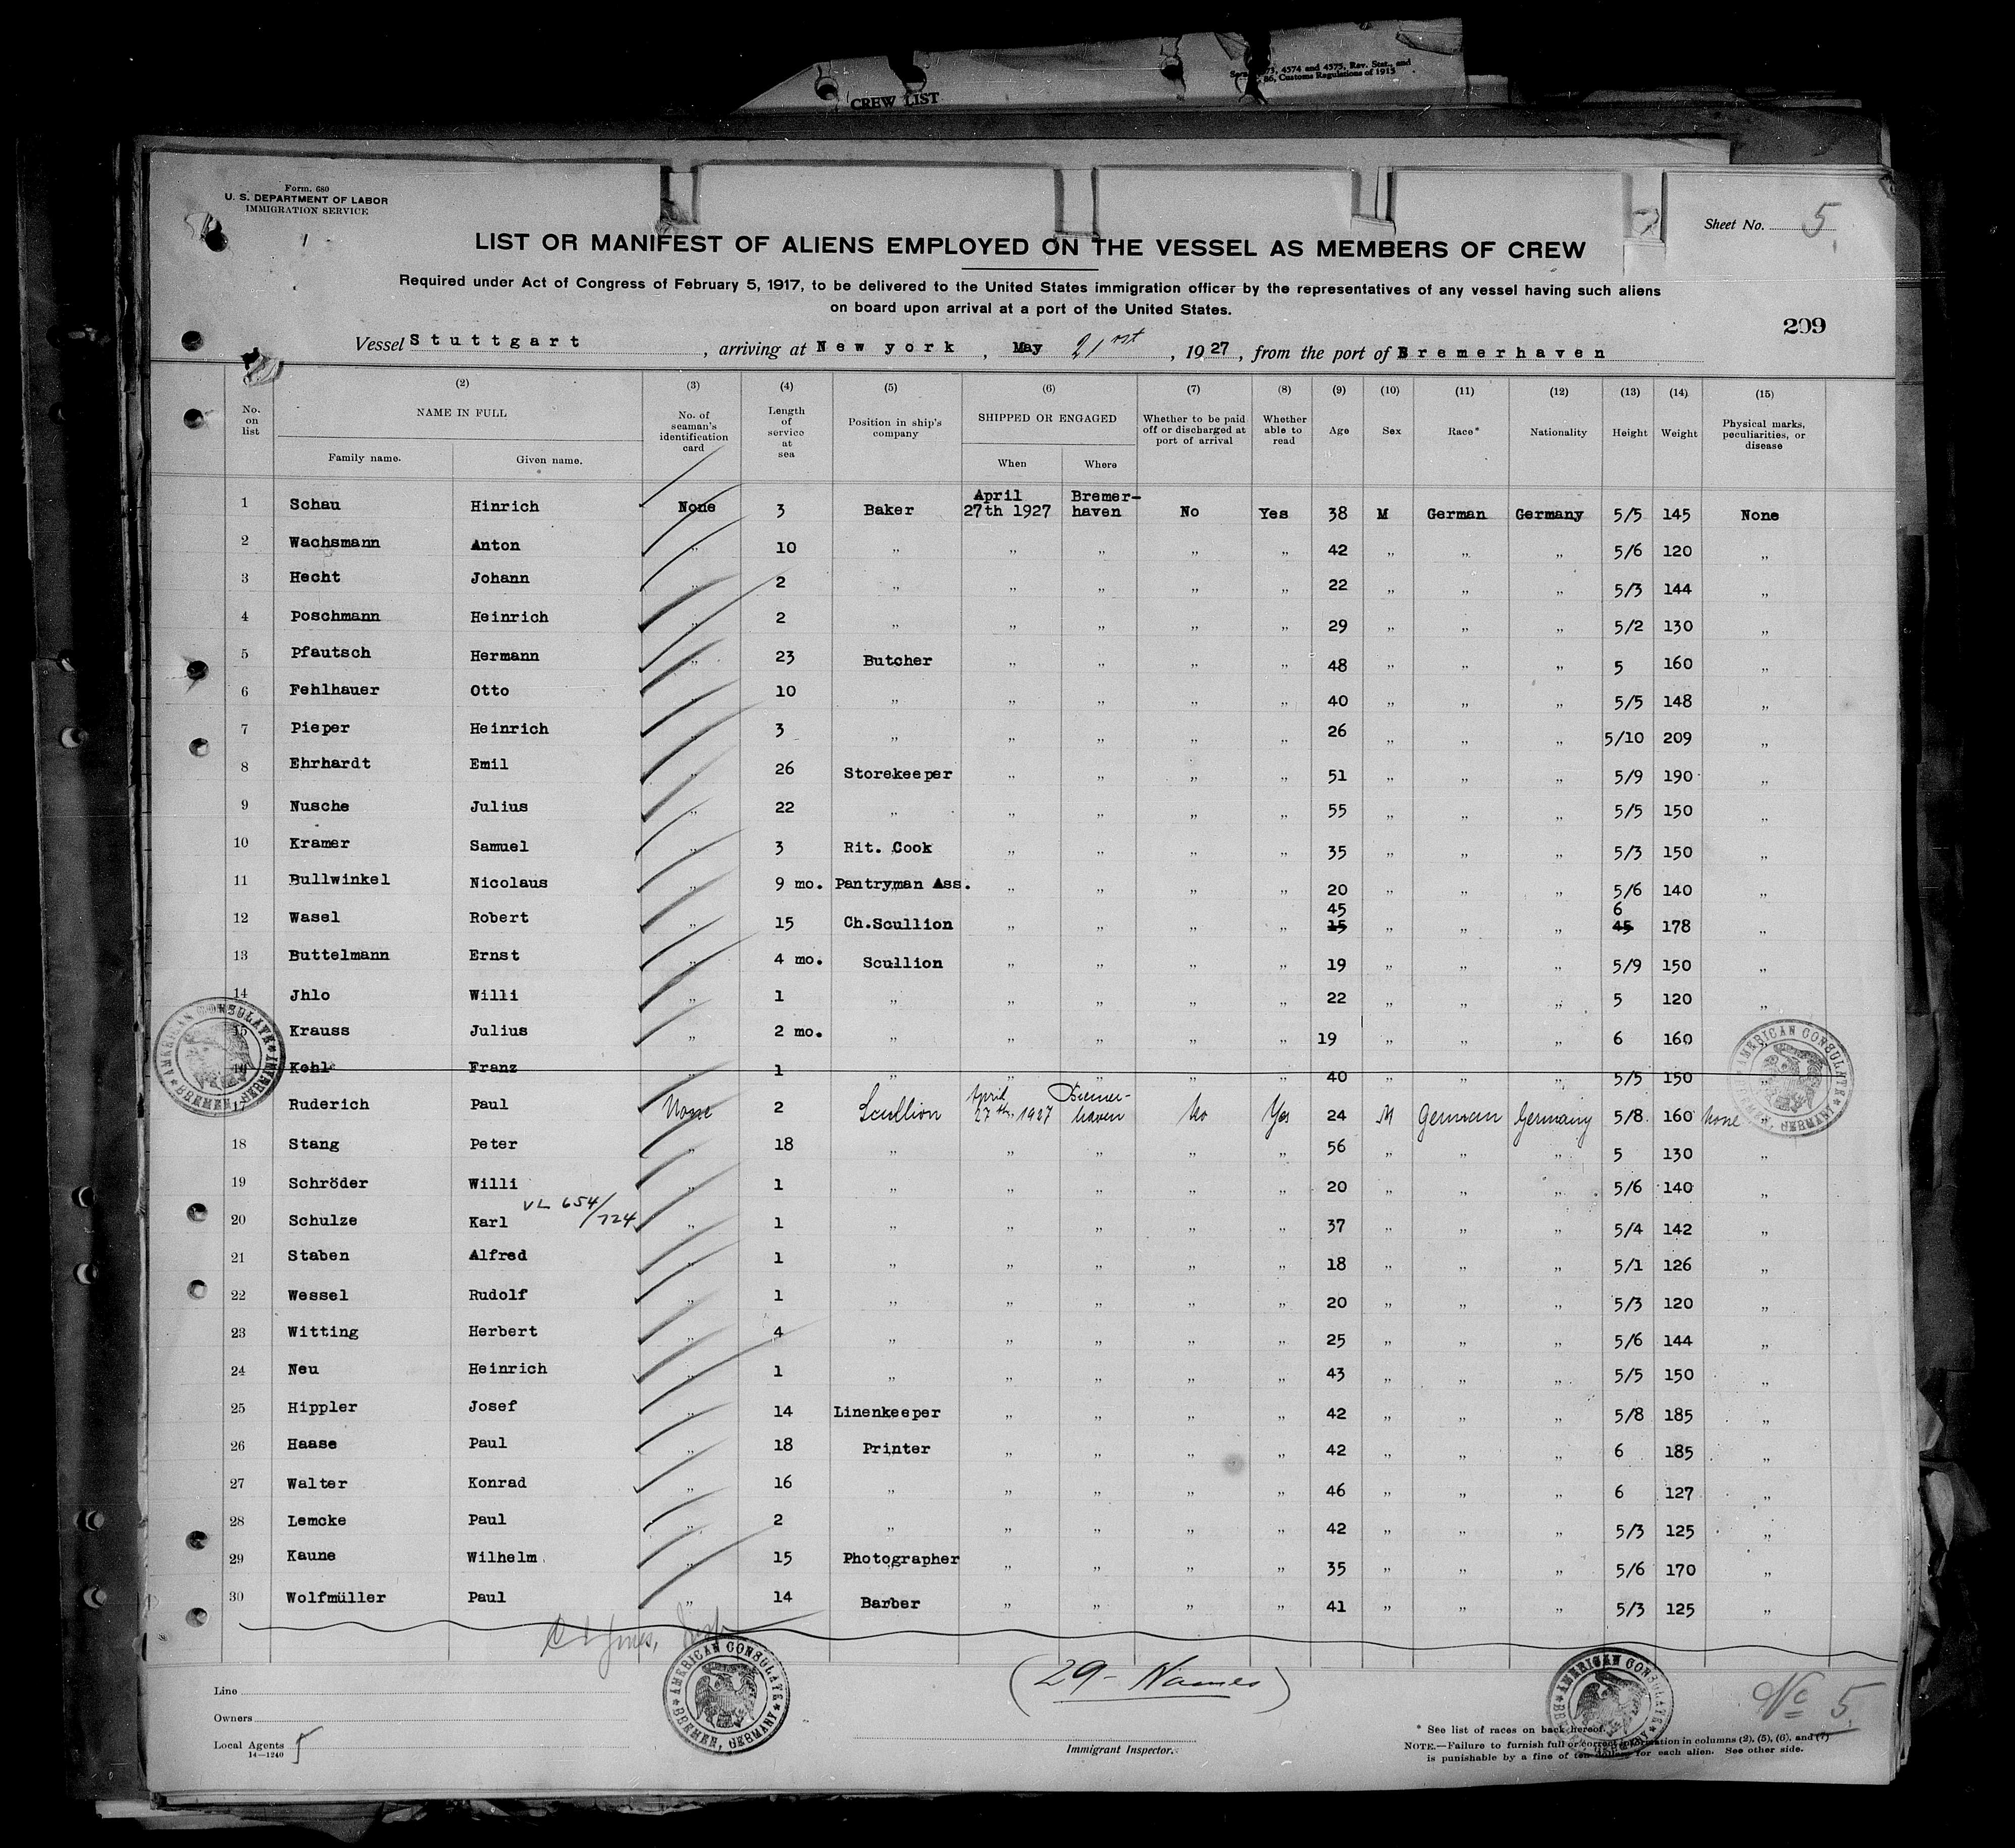 CREW LIST
4574 and 4575, Rev. Stat., and
86, Customs Regulations of 1915
Form. 680
U. S. DEPARTMENT OF LABOR
IMMIGRATION SERVICE
Sheet No. 5
LIST OR MANIFEST OF ALIENS EMPLOYED ON THE VESSEL AS MEMBERS OF CREW
Required under Act of Congress of February 5, 1917, to be delivered to the United States immigration officer by the representatives of any vessel having such aliens
on board upon arrival at a port of the United States.
209
Vessel Stuttgart, arriving at New york, May 21st, 1927, from the port of Bremerhaven
(2) (3) (4) (5) (6) (7) (8) (9) (10) (11) (12) (13) (14) (15)
No. on list NAME IN FULL Family name. Given name. No. of seaman's identification card Length of service at sea Position in ship's company SHIPPED OR ENGAGED When Where Whether to be paid off or discharged at port of arrival Whether able to read Age Sex Race* Nationality Height Weight Physical marks, peculiarities, or disease
1 Schau Hinrich None 3 Baker April 27th 1927 Bremer-haven No Yes 38 M German Germany 5/5 145 None
2 Wachsmann Anton " 10 " " " " " 42 " " " 5/6 120 "
3 Hecht Johann " 2 " " " " " 22 " " " 5/3 144 "
4 Poschmann Heinrich " 2 " " " " " 29 " " " 5/2 130 "
5 Pfautsch Hermann " 23 Butcher " " " " 48 " " " 5 160 "
6 Fehlhauer Otto " 10 " " " " " 40 " " " 5/5 148 "
7 Pieper Heinrich " 3 " " " " " 26 " " " 5/10 209 "
8 Ehrhardt Emil " 26 Storekeeper " " " " 51 " " " 5/9 190 "
9 Nusche Julius " 22 " " " " " 55 " " " 5/5 150 "
10 Kramer Samuel " 3 Rit. Cook " " " " 35 " " " 5/3 150 "
11 Bullwinkel Nicolaus " 9 mo. Pantryman Ass. " " " " 20 " " " 5/6 140 "
12 Wasel Robert " 15 Ch.Scullion " " " " 45 15 " " " 6 45 178 "
13 Buttelmann Ernst " 4 mo. Scullion " " " " 19 " " " 5/9 150 "
14 Jhlo Willi " 1 " " " " " 22 " " " 5 120 "
15 Krauss Julius " 2 mo. " " " " " 19 " " " 6 160 "
16 Kehle Franz " 1 " " " " " 40 " " " 5/5 150 "
17 Ruderich Paul None 2 Scullion April 27th 1927 Bremer-haven No Yes 24 M German Germany 5/8 160 None
18 Stang Peter " 18 " " " " " 56 " " " 5 130 "
19 Schröder Willi " 1 " " " " " 20 " " " 5/6 140 "
VL 654/724
20 Schulze Karl " 1 " " " " " 37 " " " 5/4 142 "
21 Staben Alfred " 1 " " " " " 18 " " " 5/1 126 "
22 Wessel Rudolf " 1 " " " " " 20 " " " 5/3 120 "
23 Witting Herbert " 4 " " " " " 25 " " " 5/6 144 "
24 Neu Heinrich " 1 " " " " " 43 " " " 5/5 150 "
25 Hippler Josef " 14 Linenkeeper " " " " 42 " " " 5/8 185 "
26 Haase Paul " 18 Printer " " " " 42 " " " 6 185 "
27 Walter Konrad " 16 " " " " " 46 " " " 6 127 "
28 Lemcke Paul " 2 " " " " " 42 " " " 5/3 125 "
29 Kaune Wilhelm " 15 Photographer " " " " 35 " " " 5/6 170 "
30 Wolfmüller Paul " 14 Barber " " " " 41 " " " 5/3 125 "
AMERICAN CONSULATE BREMEN, GERMANY
AMERICAN CONSULATE BREMEN, GERMANY
AMERICAN CONSULATE BREMEN, GERMANY
AMERICAN CONSULATE BREMEN, GERMANY
(29 - Names)
No 5.
Line
Owners
Local Agents
14—1240
Immigrant Inspector.
* See list of races on back hereof.
NOTE.—Failure to furnish full or correct information in columns (2), (5), (6), and (7)
is punishable by a fine of ten dollars for each alien. See other side.